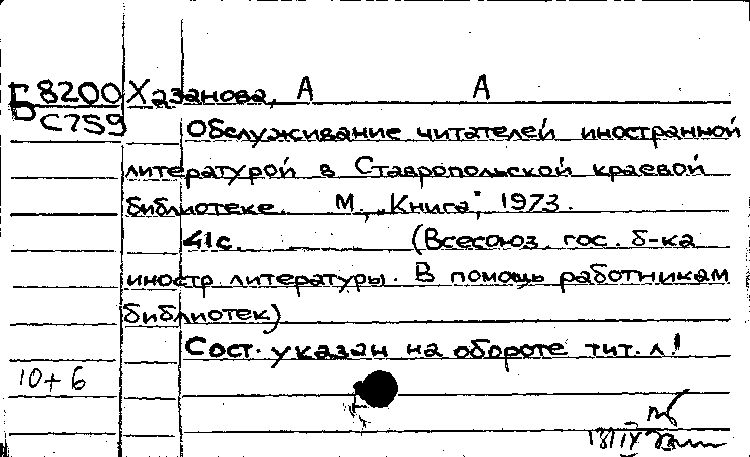 Б8200 Хазанова, А А
С759
Обслуживание читателей иностранной
литературой в Ставропольской краевой
библиотеке. М., „Книга", 1973.
41с. (Всесоюз. гос. б-ка
иностр. литературы. В помощь работникам
библиотек)
Сост. указан на обороте тит. л!
10+6